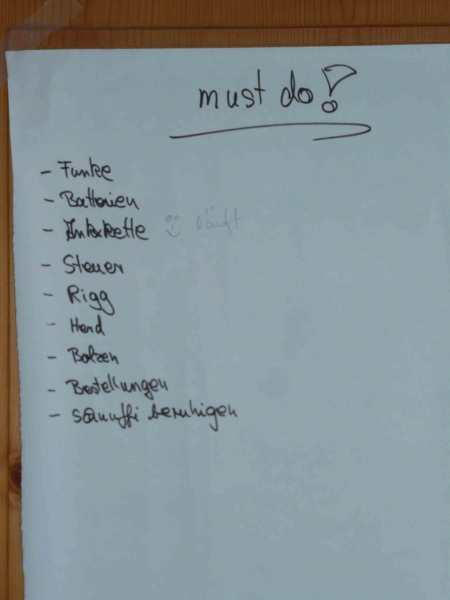 must do!
- Funke
- Batterien
- Ankerkette
- Steuer
- Rigg
- Herd
- Bolzen
- Bestellungen
- beruhigen